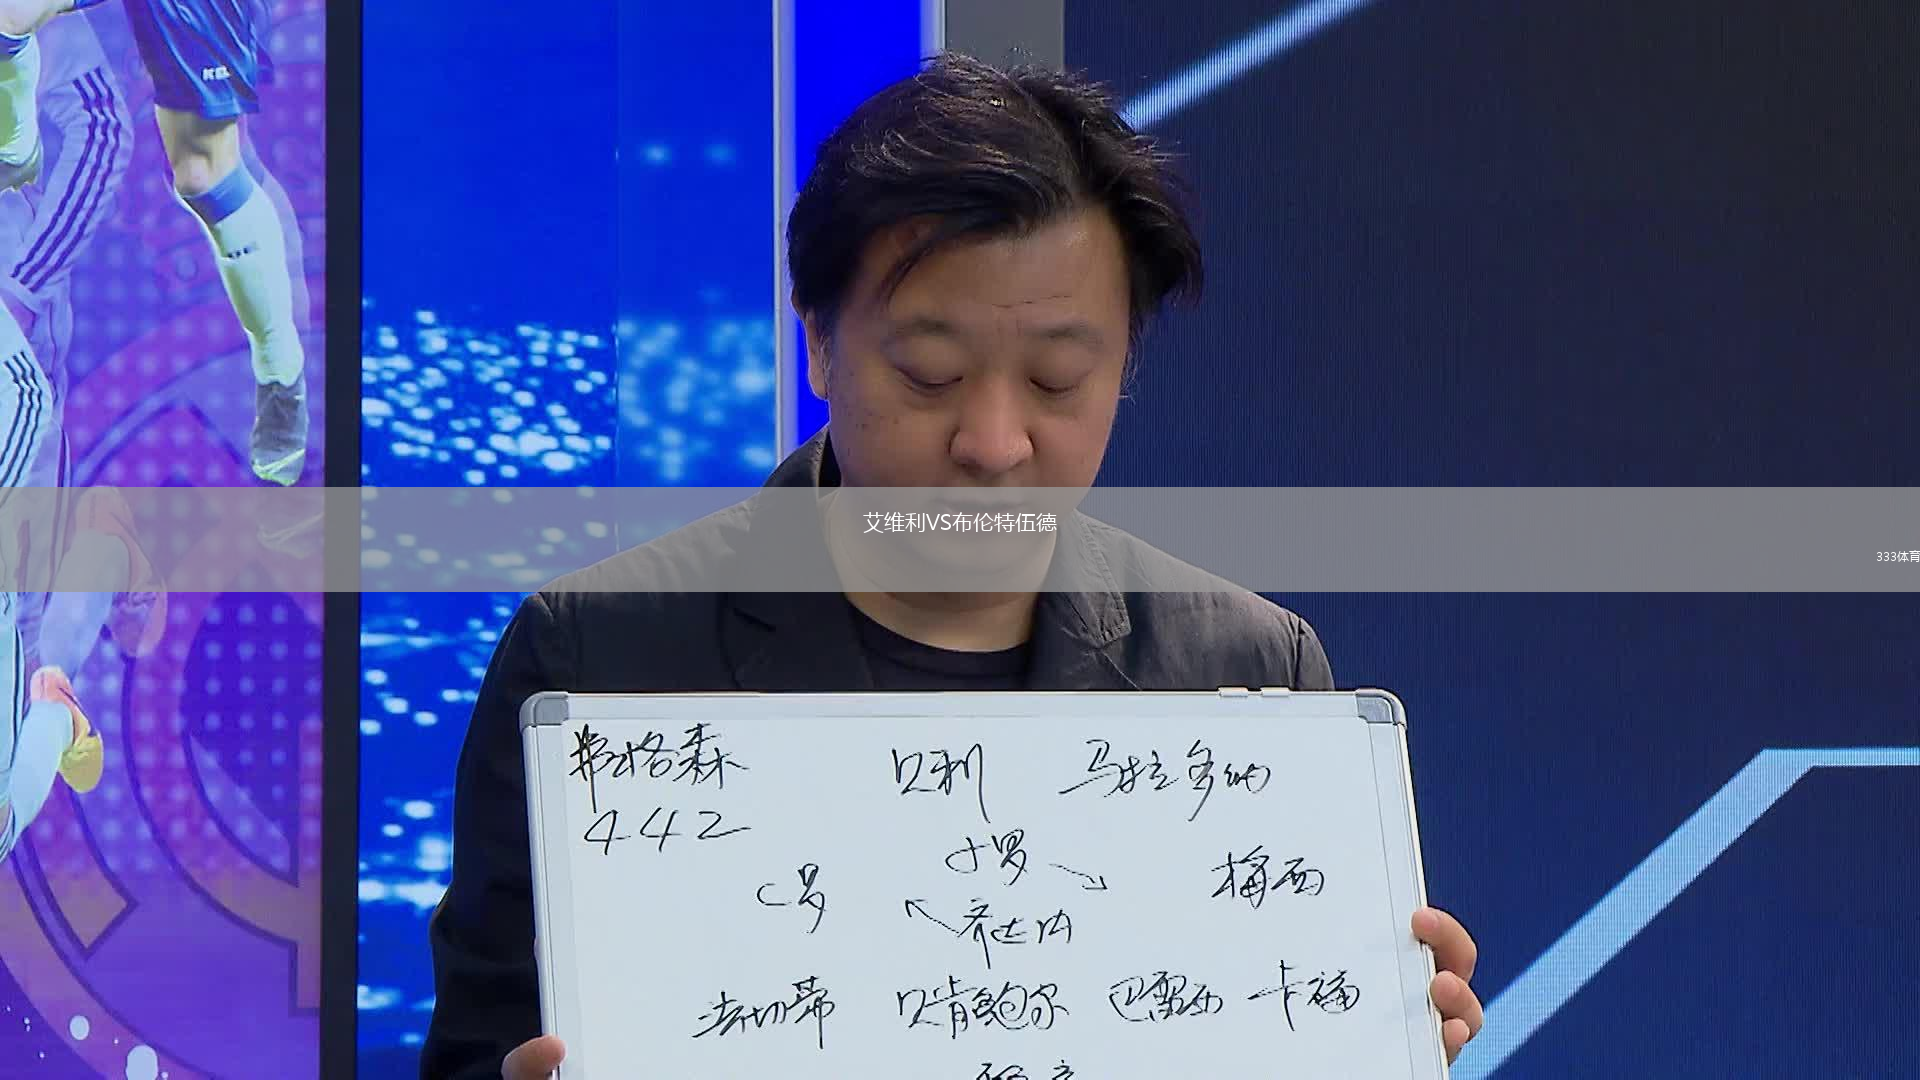 艾维利VS布伦特伍德
333体育
弗格森 贝利 马拉多纳
442
小罗
C罗 梅西
齐达内
法切蒂 贝肯鲍尔 巴雷西 卡福